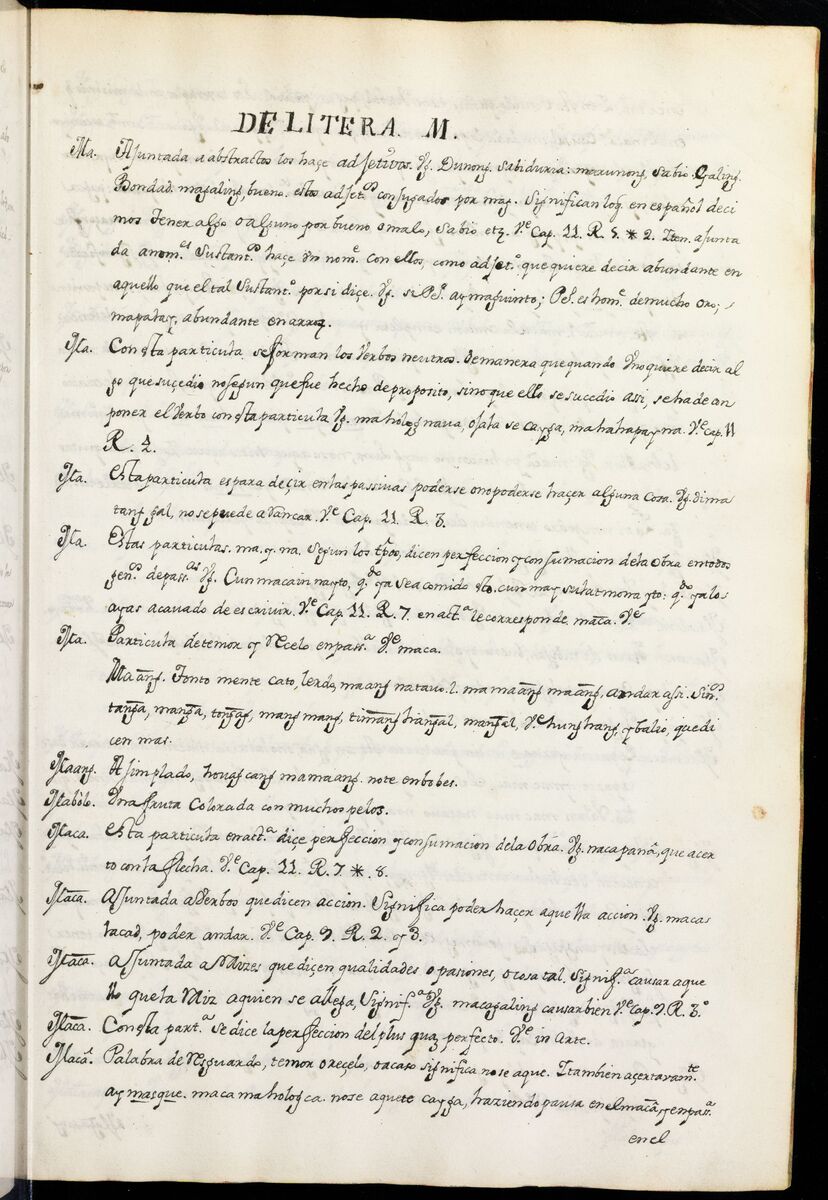 DE LITERA. M.
Ma. Ajuntada a abstractos los haçe adjetivos. Vg. Dunong, sabiduria: marunong, sabio. Galing,
Bondad. magaling, bueno. estos adjet.os conjugados por mag. Significan loq. en español deci
mos tener algo o alguno por bueno o malo, sabio etz. Ve. Cap. 11. R. 5. * 2. Iten. ajunta
da a nom.es Sustant.os haçe Un nom.e con ellos, como adjet.o que quiere decir abundante en
aquello que el tal Sustant.o por si diçe. Vg. si P.o ay maguinto; P.o es hom.e de mucho oro;
mapalay, abundante en arroz.
Ma. Con esta particula se forman los Verbos neutros. De manera que quando Uno quiere decir al
go que suçedio no segun que fue hecho de proposito, sino que ello se sucedio assi, se ha de an
poner el Verbo con esta particula Vg. maholog nava, ojala se cayga, mahahapay na. Ve. Cap. 11
R. 2.
Ma. Esta particula es para deçir en las passivas poderse o no poderse haçer alguna cosa. Vg. dima
tanggal, no se puede a vancar. Ve. Cap. 11. R. 3.
Ma. Estas particulas. ma. y. na. segun los tpōs, dicen perfeccion y consumacion de la Obra en todos
gen.os de pass.as Vg. Cun macain nayto, q.do ya sea comido esto. cun maysulat mona yto: q.do ya lo
ayas acavado de escrivir. Ve. Cap. 11. R. 7. en act.a le corresponde. maca. Ve.
Ma. Particula de temor y Recelo en pass.a Ve. maca.
Maang. Tonto mente cato, lerdo, maang na tavo. l. mamaang maang, andar assi. Sin.os
tanga, manga, tongag, mang mang, timang hangal, mangal, Ve. hunghang, y balio, que di
cen mas.
Maang. Asimplado, houag cang mamaang. note enbobes.
Mabolo. Una fruta Colorada con muchos pelos.
Maca. Esta particula en act.a diçe perfeccion y consumacion de la Obra. Vg. naca pana, que acer
to con la flecha. Ve. Cap. 11. R. 7 * 8.
Maca. Ajuntada a Verbos que dicen accion. Significa poder haçer aquella accion. Vg. maca
lacad, poder andar. Ve. Cap. 9. R. 2. y 3.
Maca. Ajuntada a Raizes que diçen qualidades o passiones, o cosa tal. Signif.a causar aque
llo que la Raiz a quien se allega, Signif.a Vg. macagaling causar bien Ve. Cap. 9. R. 3.o
Maca. Con esta part.a se dice la perfeccion del plus quaz perfecto. Ve. in Arte.
Maca. Palabra de Resguardo, temor o reçelo, o acaso significa no se aque. I tambien açertaram.te
ay masque. maca maholog ca. no se aquete cayga, haziendo pausa en el maca, y en pass.a
en el